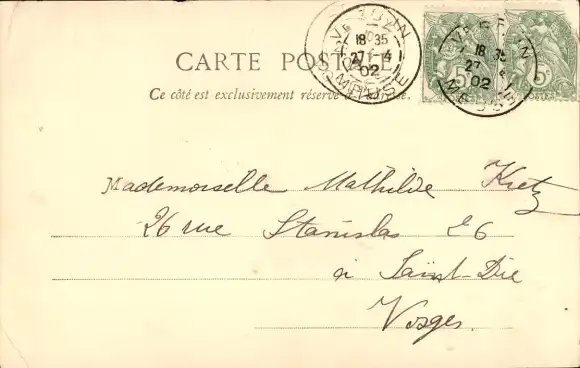 VERDUN
18 35
27 - 4
02
MEUSE
VERDUN
18 35
27 4
02
MEUSE
5
5
CARTE POSTALE
Ce côté est exclusivement réservé à l'adresse.
Mademoiselle Mathilde Kretz
26 rue Stanislas 26
à Saint-Dié
Vosges.